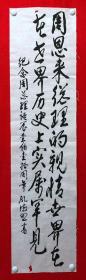 周恩来总理的亲情世界在
在世界历史上实属罕见
纪念周总理诞辰壹佰壹拾周年